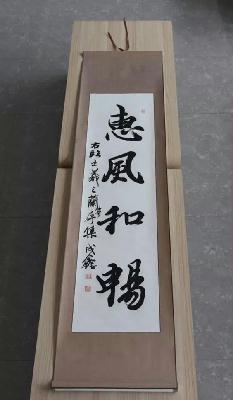 惠風和暢
右臨王羲之蘭亭集